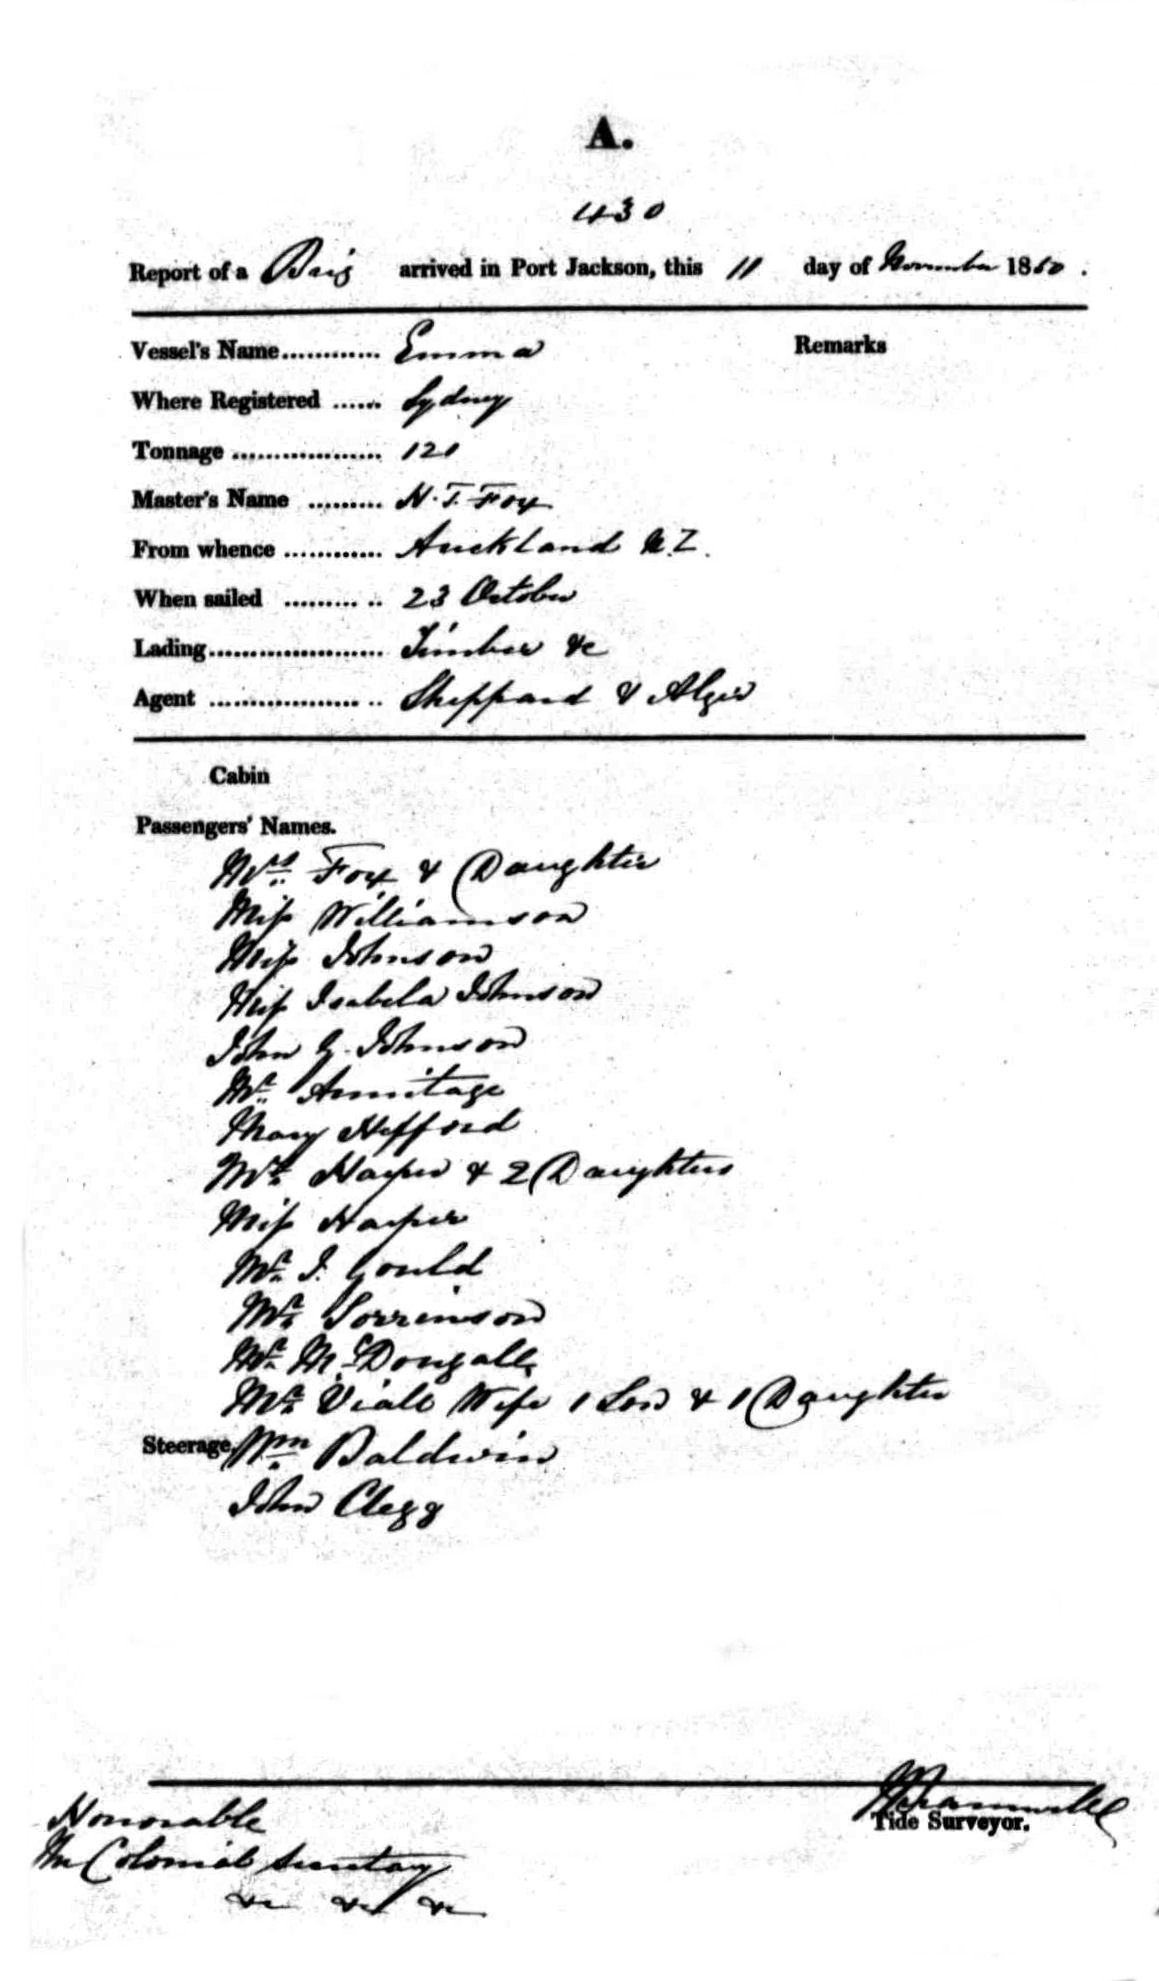 A.
430
Report of a Brig arrived in Port Jackson, this 11 day of November 1850.
Vessel's Name............ Emma Remarks
Where Registered ...... Sydney
Tonnage .................. 121
Master's Name ......... H. T. Fox
From whence ............ Auckland N.Z.
When sailed ......... .. 23 October
Lading..................... Timber &c
Agent .................. .. Sheppard & Alger
Cabin
Passengers' Names.
Mrs Fox & Daughter
Miss Williamson
Miss Johnson
Miss Isabela Johnson
John G. Johnson
Mr Armitage
Mary Hefford
Mr Harper & 2 Daughters
Miss Harper
Mr J. Gould
Mr Sorrinson
Mr McDougall
Mr Viall Wife 1 Son & 1 Daughter
Steerage. Wm Baldwin
John Clegg
Tide Surveyor.
Honorable
The Colonial Secretary
&c &c &c